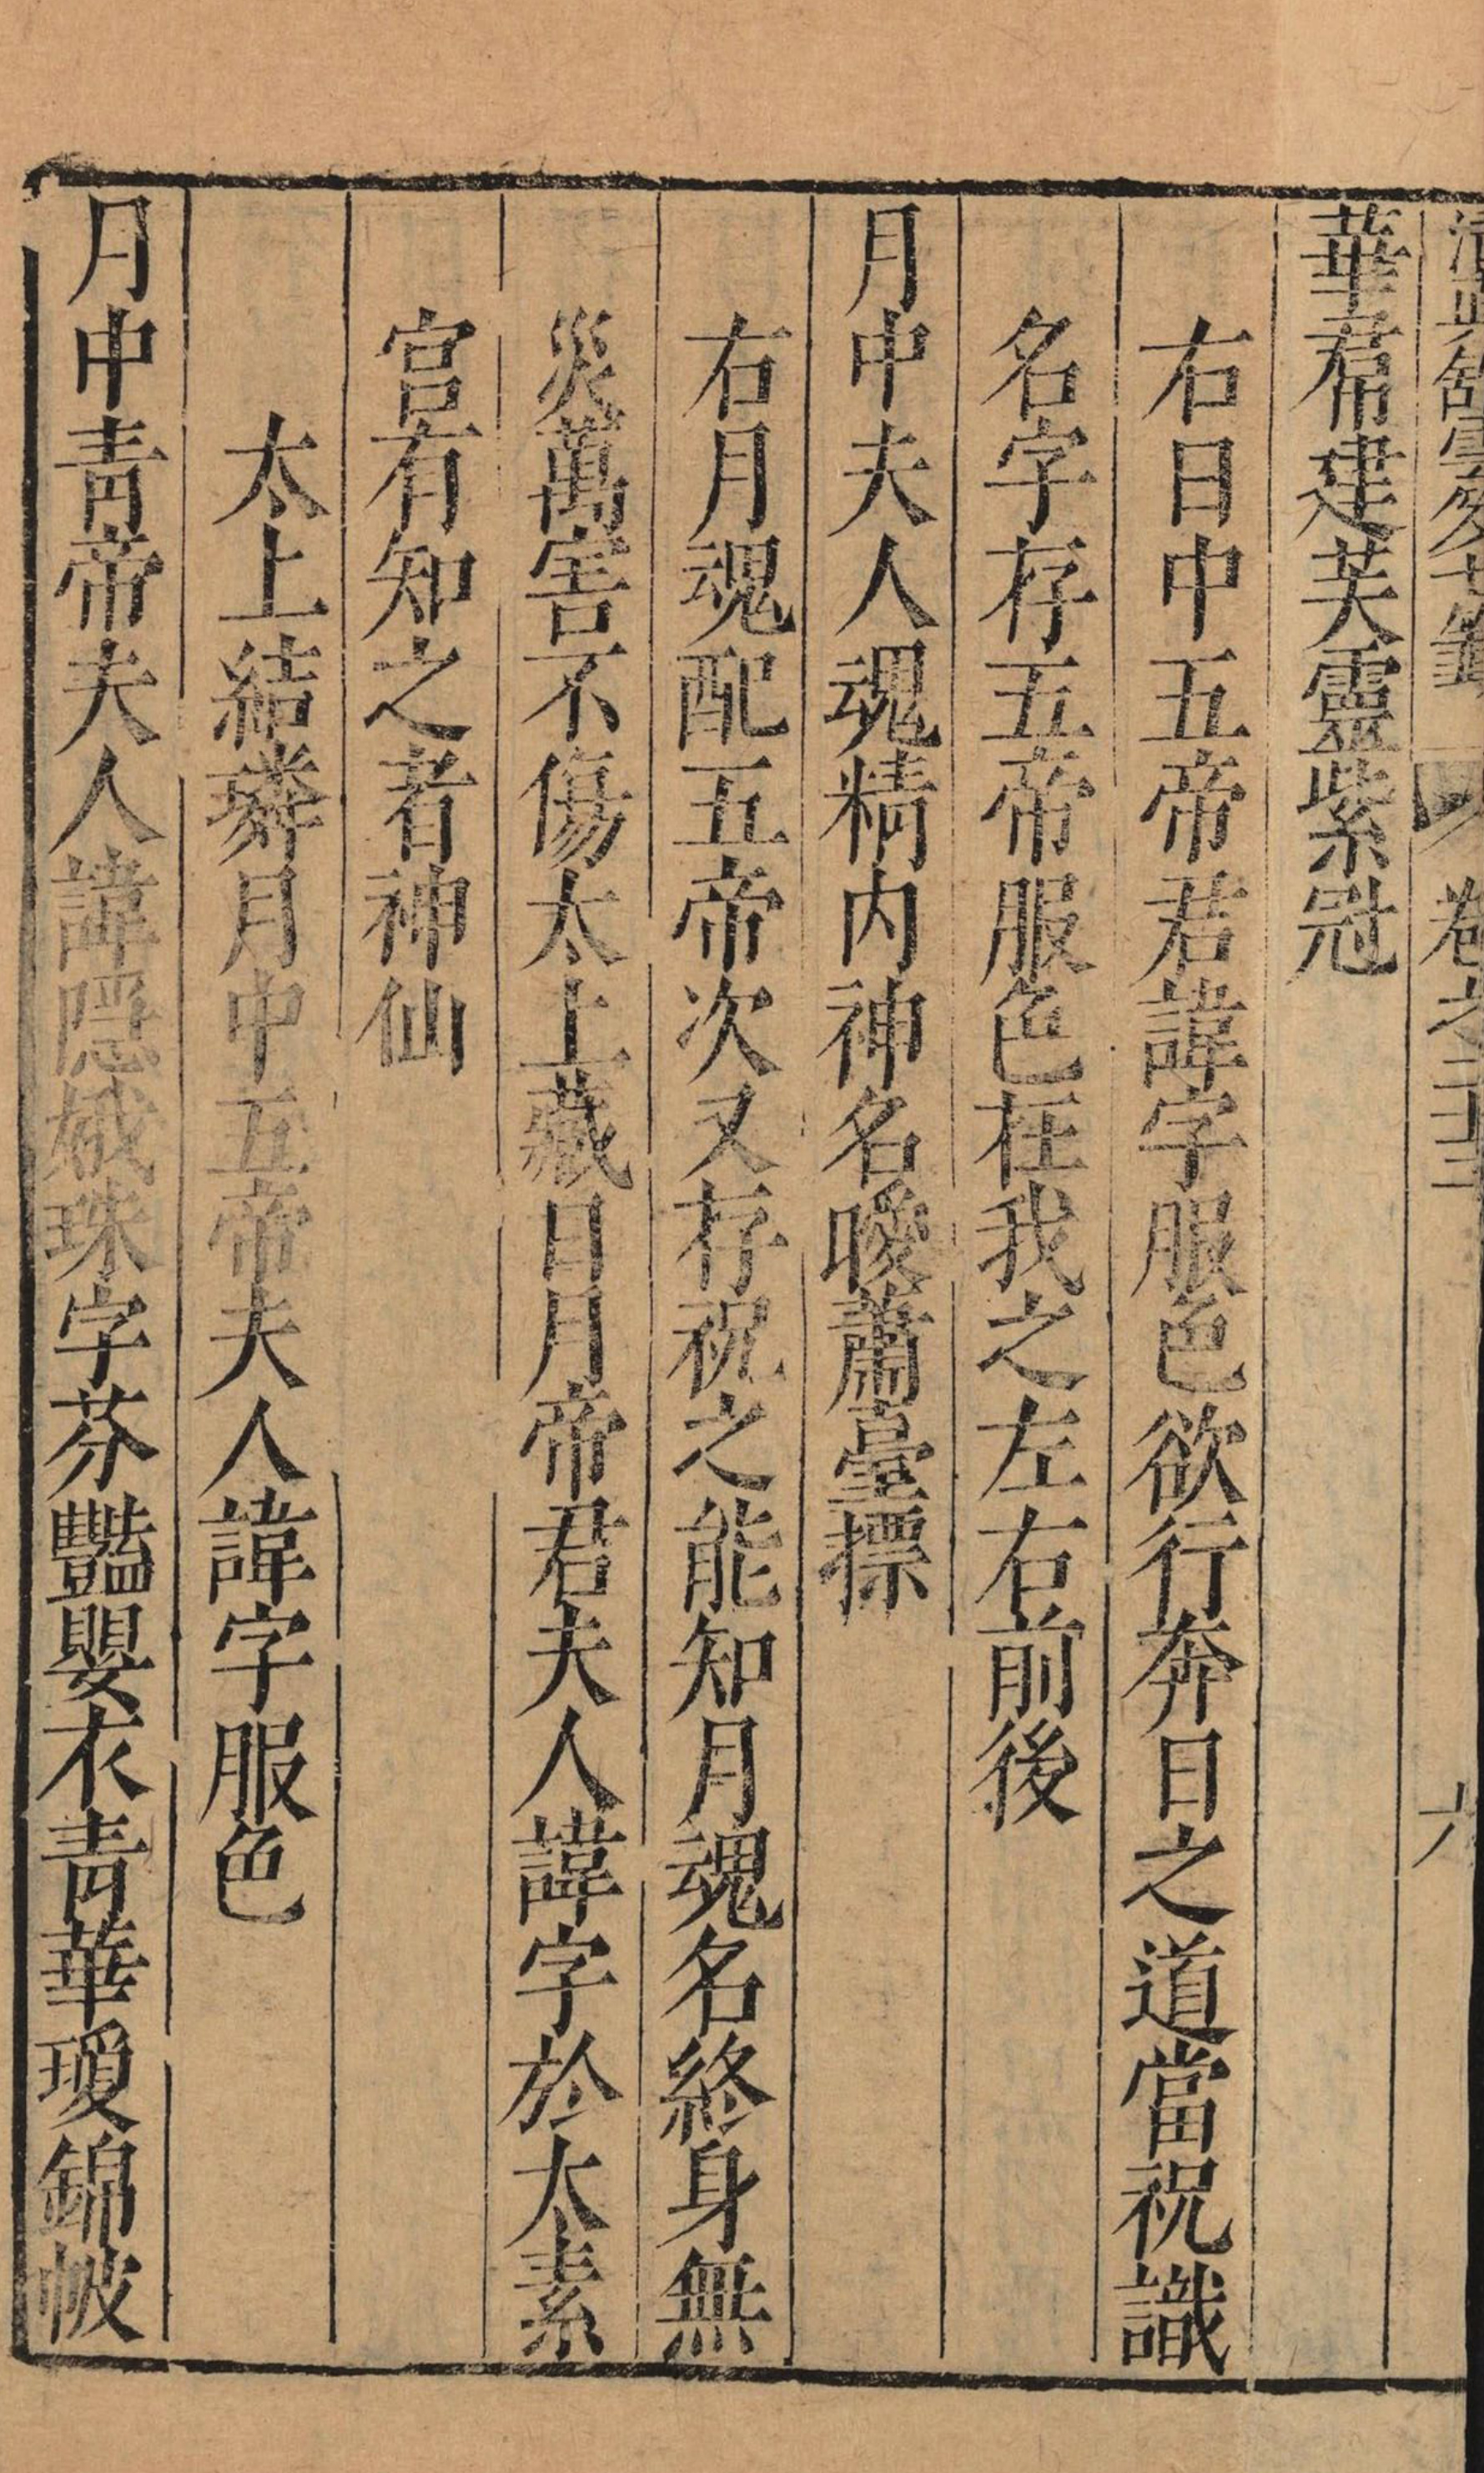 卷之二十三 六
華帬建芙靈紫冠
右日中五帝君諱字服色欲行奔日之道當祝識
名字存五帝服色在我之左右前後
月中夫人魂精内神名曖蕭臺摽
右月魂配五帝次又存祝之能知月魂名終身無
災萬害不傷太上藏日月帝君夫人諱字於太素
宫有知之者神仙
太上結璘月中五帝夫人諱字服色
月中靑帝夫人諱隱娥珠字芬豔嬰衣靑華瓊錦帔